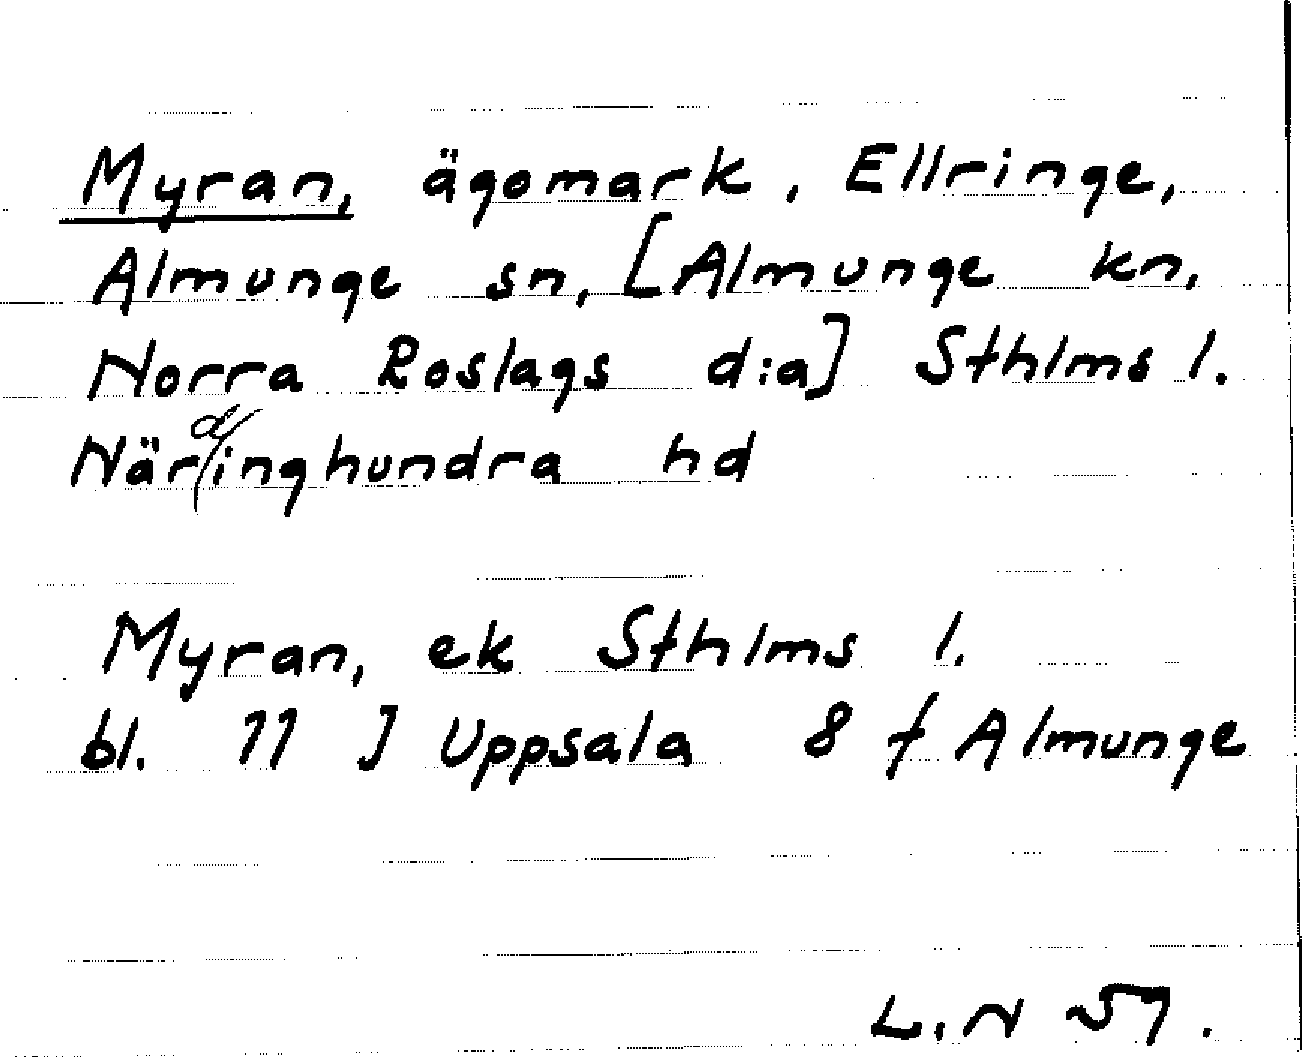 Myran, ägomark, Ellringe,
Almunge sn, [Almunge kn,
Norra Roslags d:a] Sthlms l.
Närdinghundra hd
Myran, ek Sthlms l.
bl. 11 J Uppsala 8 f Almunge
L.N 57.